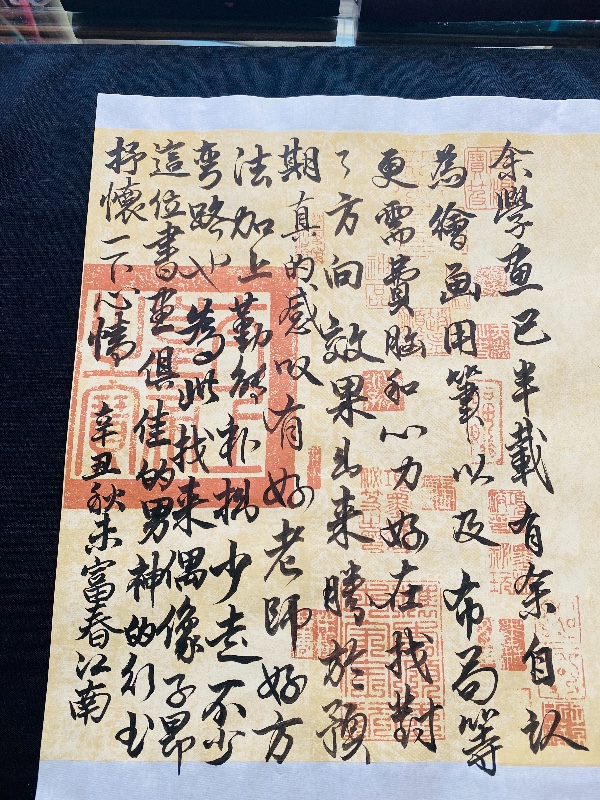 余學畫已半載有余自认
為繪画用筆以及布局等
更需費腦和心力好在找對
了方向效果出来勝於預
期真的感叹有好老師好方
法加上勤能补拙少走不少
弯路也為此找来偶像子昂
這位書畫俱佳的男神的行书
抒懷一下心情 辛丑秋末富春江南